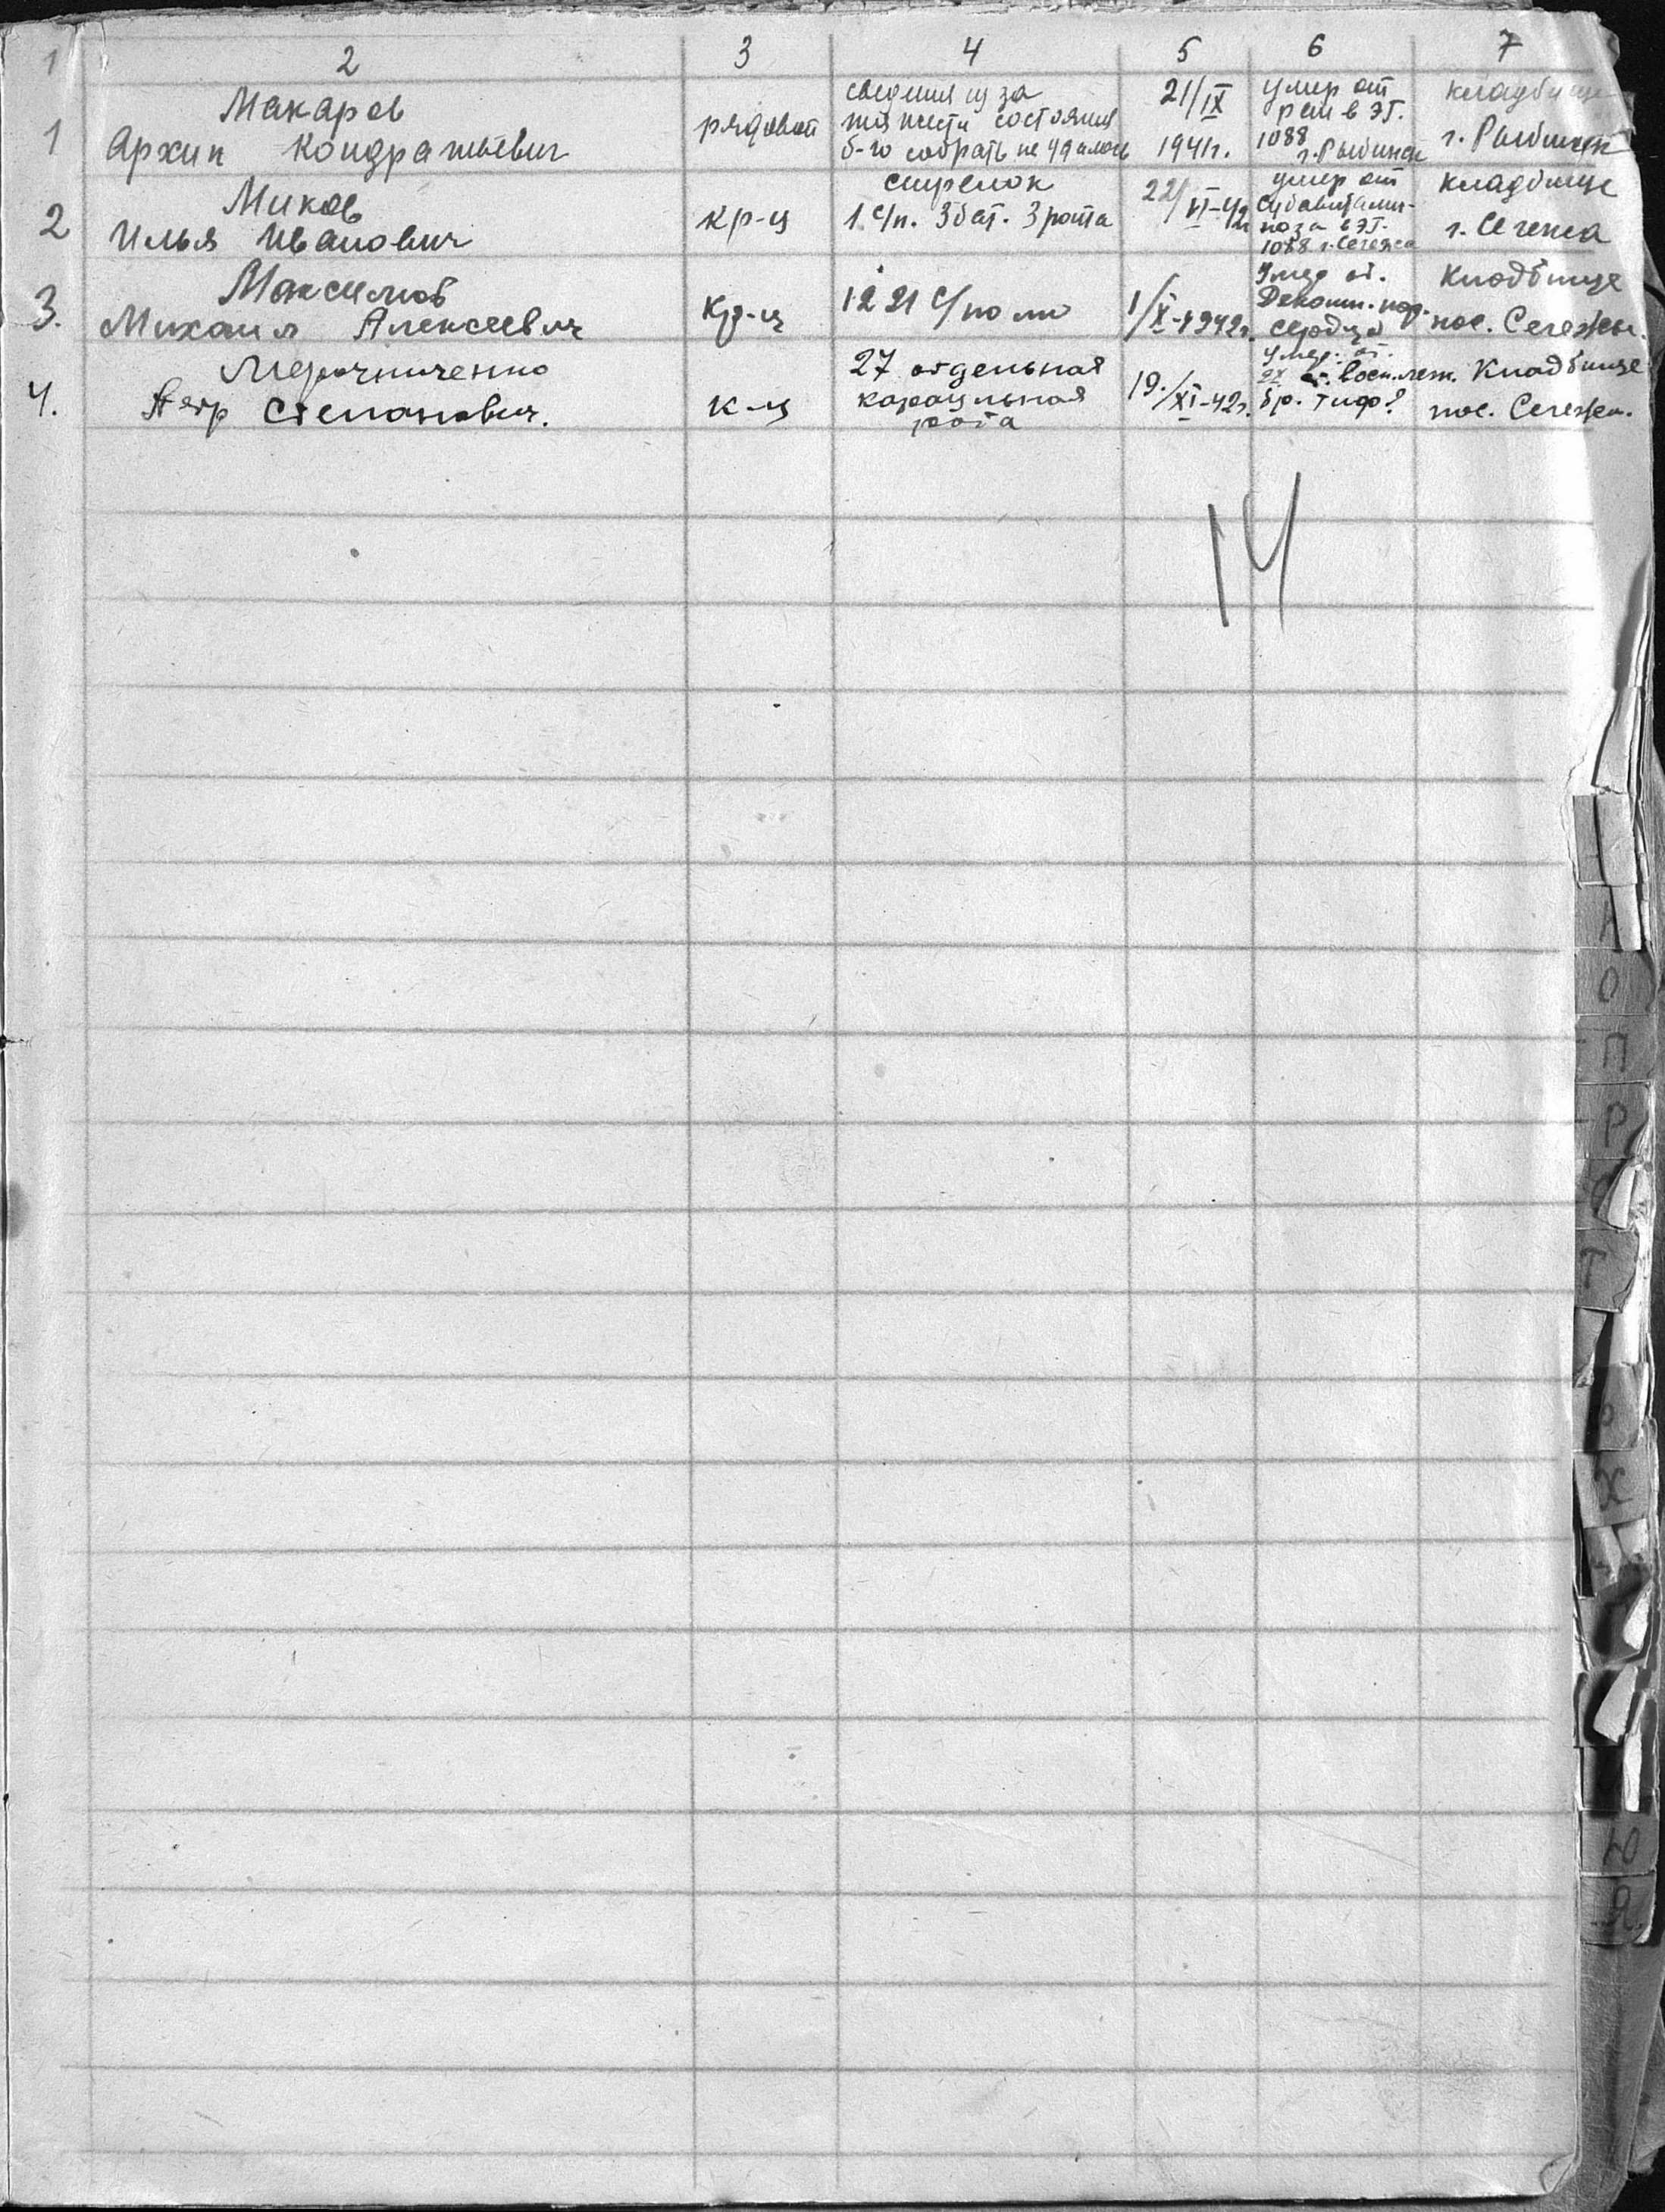 1 2 3 4 5 6 7
1 Макаров Архип Кондратьевич рядовой сведения из за тяжести состояния б-го собрать не удалось 21/IX 1941г. умер от ран в ЭГ. 1088 г. Рыбинск кладбище г. Рыбинск
2 Миков Илья Иванович кр-ц стрелок 1 с/п. 3 бат. 3 рота 22/VI-42г умер от субавитаминоза в ЭГ. 1088 г. Сегежа кладбище г. Сегежа
3. Максимов Михаил Алексеевич Кр-ц 12 21 с/полк 1/X-1942г. Умер от. Декомп. пор. сердца Кладбище пос. Сегежа.
4. Петр Степанович. к-ц 27 отдельная караульная рота 19./XI-42г. умер. от. восп. лег. бр. тиф? Кладбище пос. Сегежа.
14
К
О
П
Р
С
Т
Х
Ю
Я